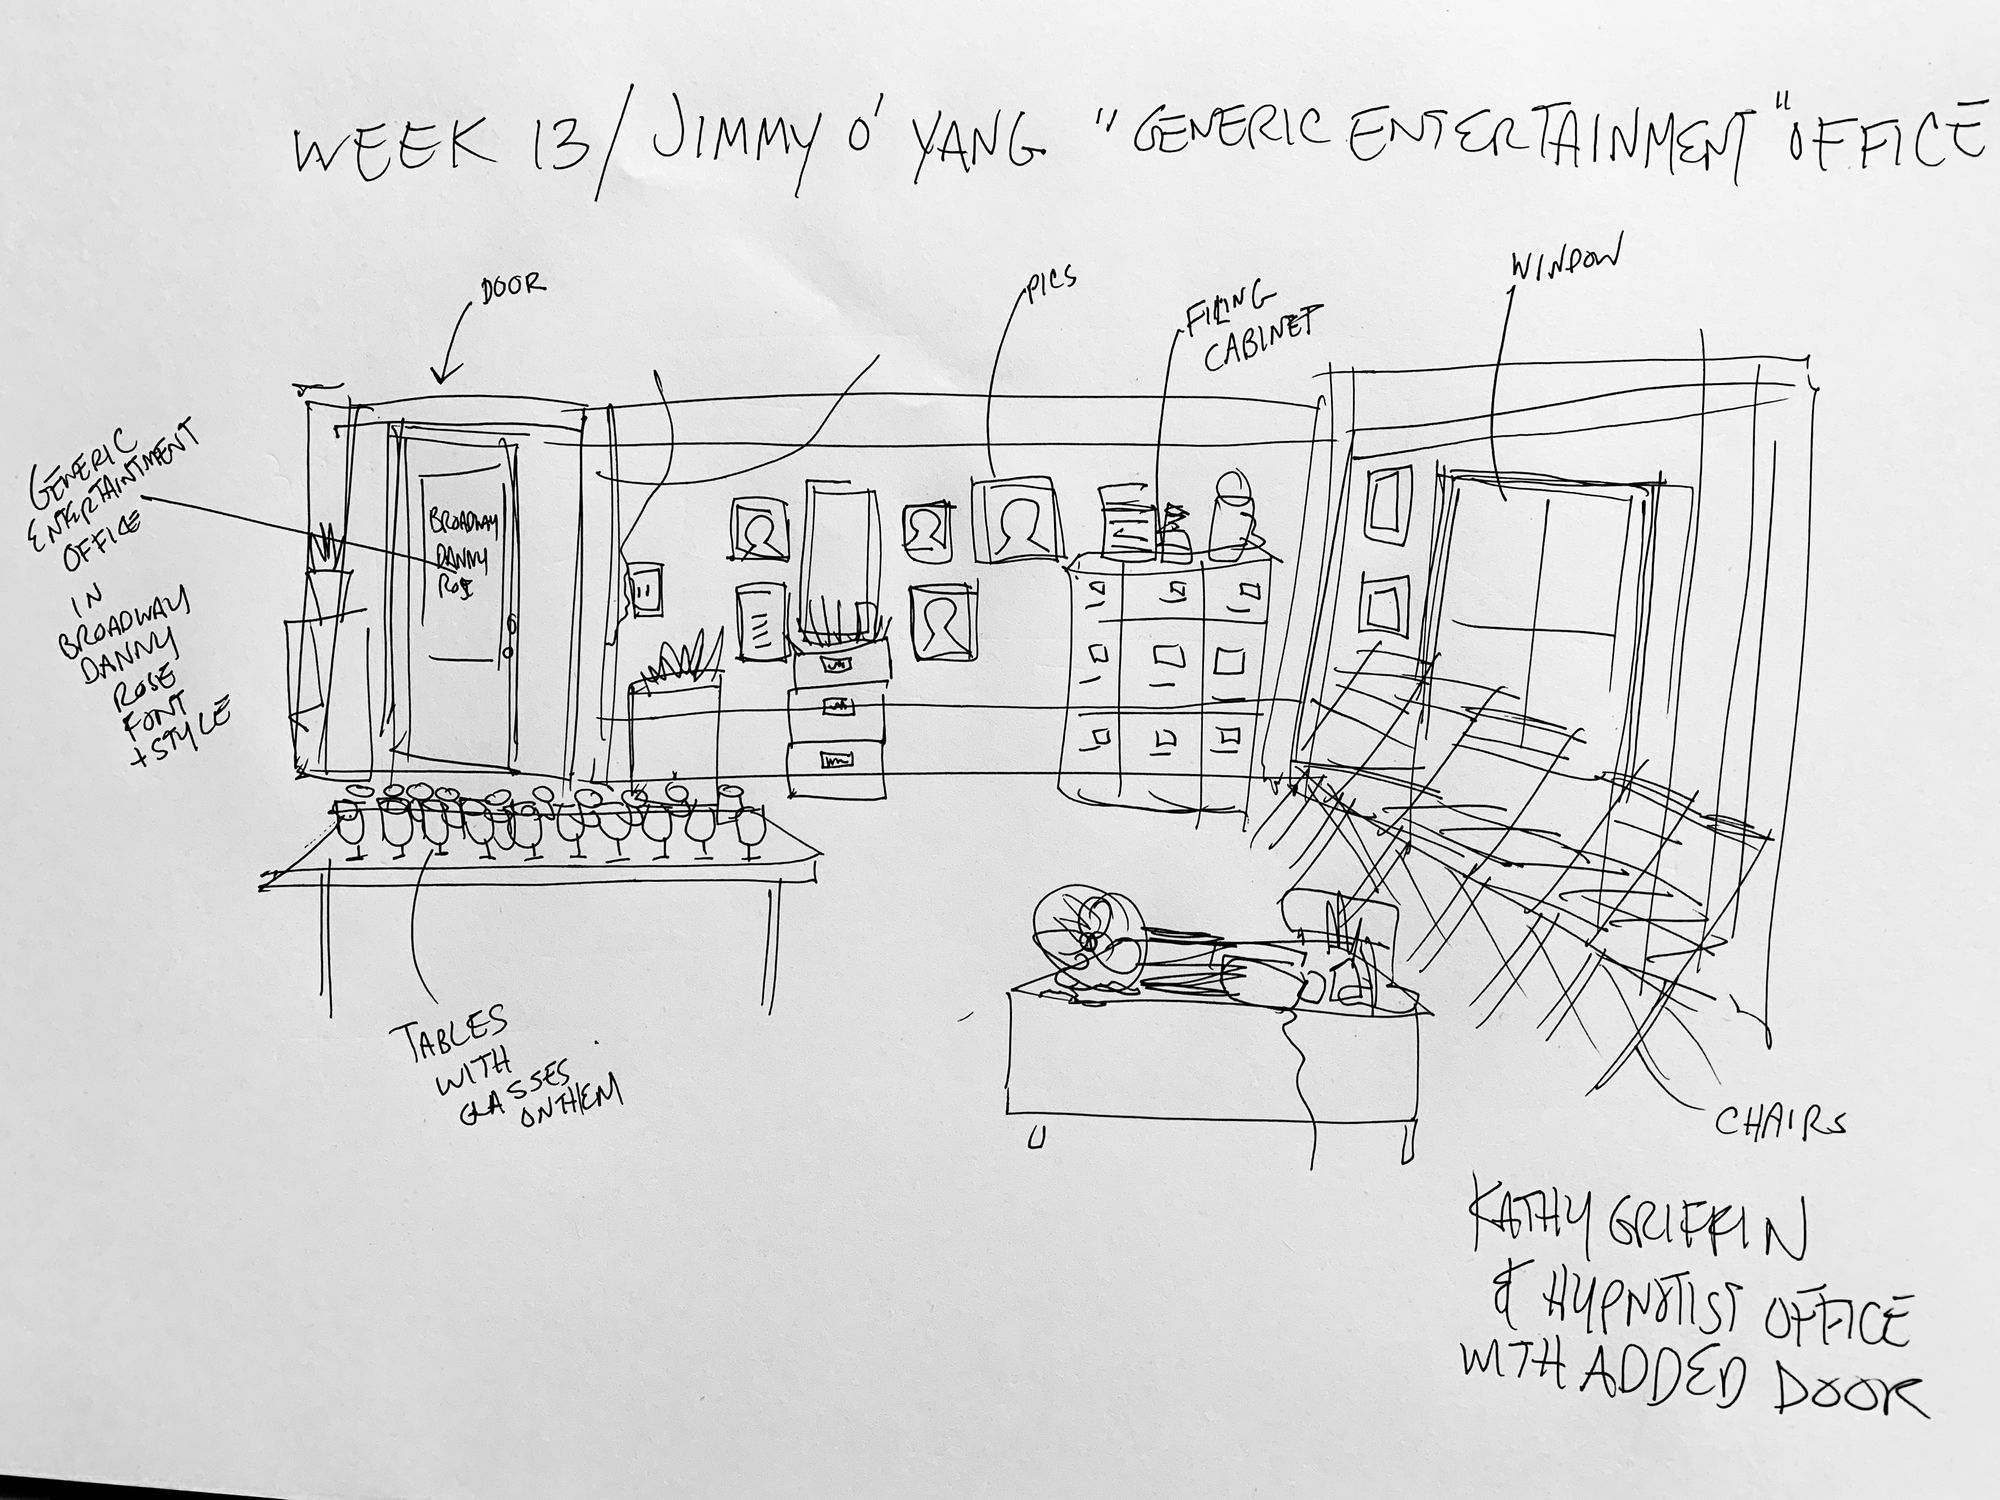 WEEK 13 / JIMMY O' YANG "GENERIC ENTERTAINMENT" OFFICE
DOOR
PICS
FILING
CABINET
WINDOW
GENERIC
ENTERTAINTMENT
OFFICE
IN
BROADWAY
DANNY
ROSE
FONT
+ STYLE
BROADWAY
DANNY
ROSE
TABLES
WITH
GLASSES
ON THEM
CHAIRS
KATHY GRIFFIN
& HYPNOTIST OFFICE
WITH ADDED DOOR